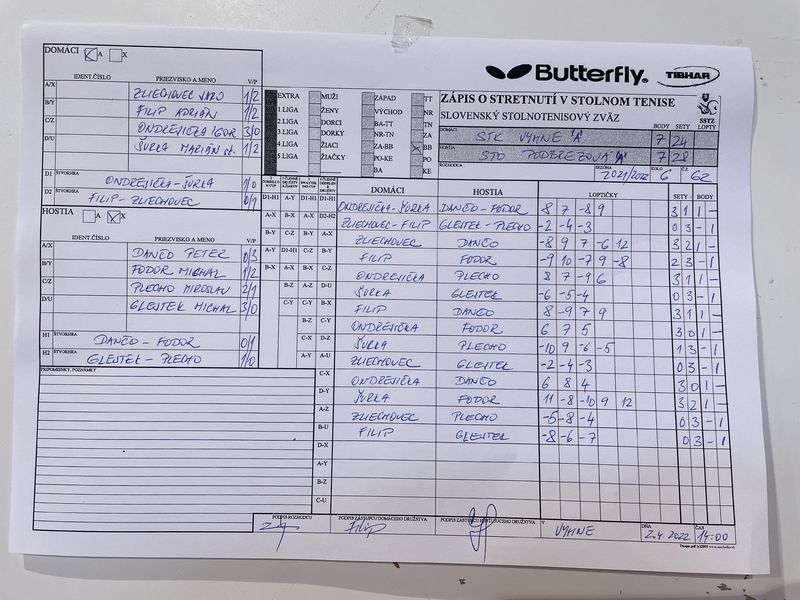 DOMÁCI A X
IDENT.ČÍSLO PRIEZVISKO A MENO V/P
A/X ZLIECHOVEC JARO 1/2
B/Y FILIP ADRIÁN 1/2
C/Z ONDREJIČKA IGOR 3/0
D/U ŠURKA MARIÁN st. 1/2
D1 ŠTVORHRA ONDREJIČKA - ŠURKA 1/0
D2 ŠTVORHRA FILIP - ZLIECHOVEC 0/1
HOSTIA A X
IDENT.ČÍSLO PRIEZVISKO A MENO V/P
A/X DANČO PETER 0/3
B/Y FODOR MICHAL 1/2
C/Z PLECHO MIROSLAV 2/1
D/U GLEJTEK MICHAL 3/0
H1 ŠTVORHRA DANČO - FODOR 0/1
H2 ŠTVORHRA GLEJTEK - PLECHO 1/0
PRIPOMIENKY, POZNÁMKY
Butterfly® TIBHAR
EXTRA MUŽI ZÁPAD TT
1.LIGA ŽENY VÝCHOD NR
2.LIGA DORCI BA-TT TN
3.LIGA DORKY NR-TN ZA
4.LIGA ŽIACI ZA-BB BB
5.LIGA ŽIAČKY PO-KE PO
BA KE
ZÁPIS O STRETNUTÍ V STOLNOM TENISE
SLOVENSKÝ STOLNOTENISOVÝ ZVÄZ
SSTZ
BODY SETY LOPTY
DOMÁCI STK VYHNE "A" 7 24
HOSTIA STO PODBREZOVÁ "A" 7 28
ROZHODCA SEZÓNA 2021/2022 KOLO 6 Č.Z. 62
DOMÁCI HOSTIA LOPTIČKY SETY BODY
D1-H1 A-Y D1-H1 D1-H1 ONDREJIČKA - ŠURKA DANČO - FODOR 8 7 -8 9 3 1 1 -
A-X B-X A-X D2-H2 ZLIECHOVEC - FILIP GLEJTEK - PLECHO -2 -4 -3 0 3 - 1
B-Y C-Z B-Y A-X ZLIECHOVEC DANČO -8 9 7 -6 12 3 2 1 -
A-Y D1-H1 C-Z B-Y FILIP FODOR -9 10 -7 9 -8 2 3 - 1
B-X A-X B-X C-Z ONDREJIČKA PLECHO 8 7 -9 6 3 1 1 -
B-Z A-Z D-U ŠURKA GLEJTEK -6 -5 -4 0 3 - 1
C-Y C-Y B-X FILIP DANČO 8 -9 7 9 3 1 1 -
B-Z C-Y ONDREJIČKA FODOR 6 7 5 3 0 1 -
C-X D-Z ŠURKA PLECHO -10 9 -6 -5 1 3 - 1
A-Y A-U ZLIECHOVEC GLEJTEK -2 -4 -3 0 3 - 1
C-X ONDREJIČKA DANČO 6 8 4 3 0 1 -
D-Y ŠURKA FODOR 11 -8 -10 9 12 3 2 1 -
A-Z ZLIECHOVEC PLECHO -5 -8 -4 0 3 - 1
B-U FILIP GLEJTEK -8 -6 -7 0 3 - 1
D-X
A-Y
B-Z
C-U
PODPIS ROZHODCU PODPIS ZÁSTUPCU DOMÁCEHO DRUŽSTVA Filip PODPIS ZÁSTUPCU HOSŤUJÚCEHO DRUŽSTVA V VYHNE DŇA 2.4.2022 ČAS 14:00